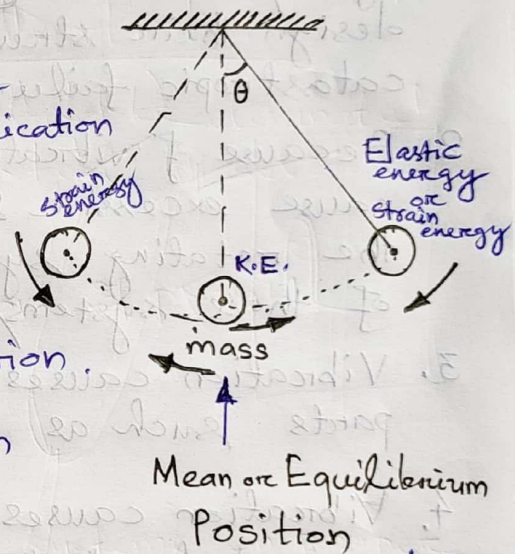 θ
ication
Elastic
energy
or
strain
energy
strain
energy
K.E.
mass
ion
Mean or Equilibrium
Position